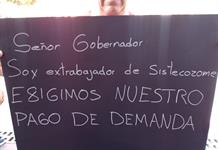 Señor Gobernador
Soy extrabajador de Sistecozome
EXIGIMOS NUESTRO
PAGO DE DEMANDA